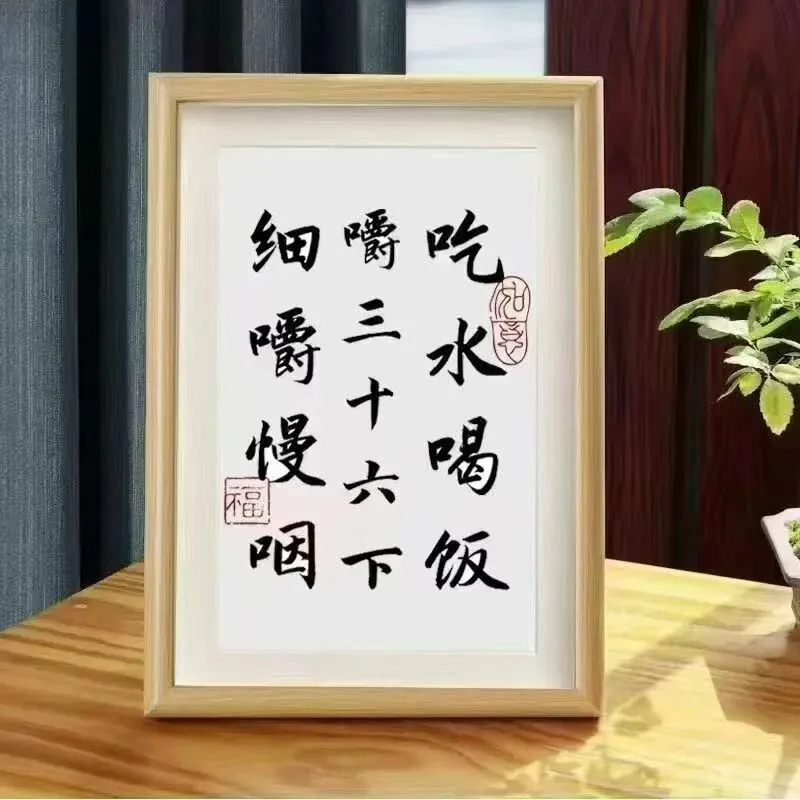 吃水喝饭
嚼三十六下
细嚼慢咽
如意
福